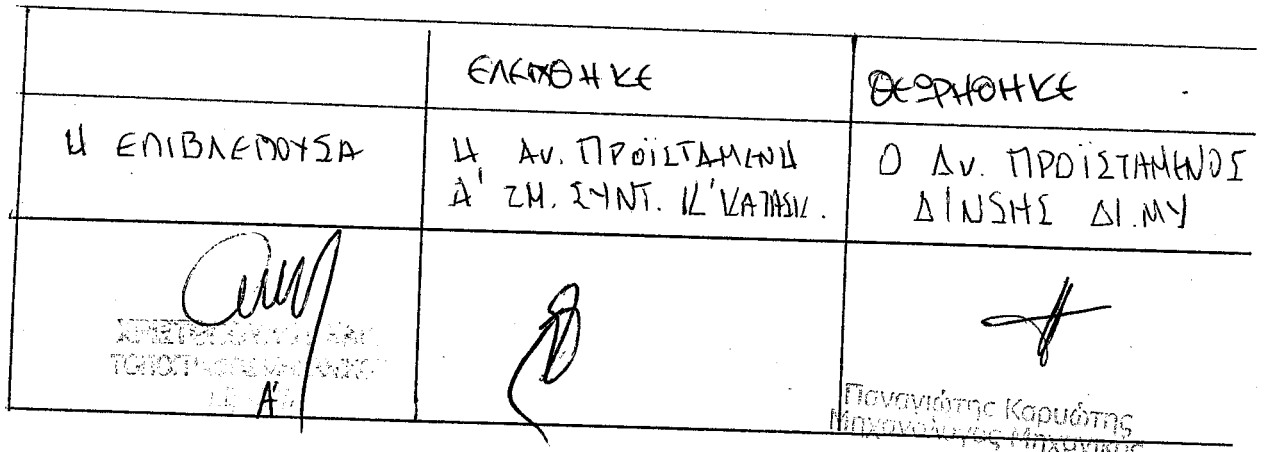 ΕΛΕΓΧΘΗΚΕ
ΘΕΩΡΗΘΗΚΕ
Η ΕΠΙΒΛΕΠΟΥΣΑ
Η Αν. ΠΡΟΪΣΤΑΜΕΝΗ
Α' ΤΜ. ΣΥΝΤ. Κ' ΚΑΤΑΣΚ.
Ο Αν. ΠΡΟΪΣΤΑΜΕΝΟΣ
Δ/ΝΣΗΣ ΔΙ.ΜΥ
ΤΟΠΟΓΡΑΦΟΣ
Α'
Παναγιώτης Καρυώτης
Μηχανολόγος Μηχανικός